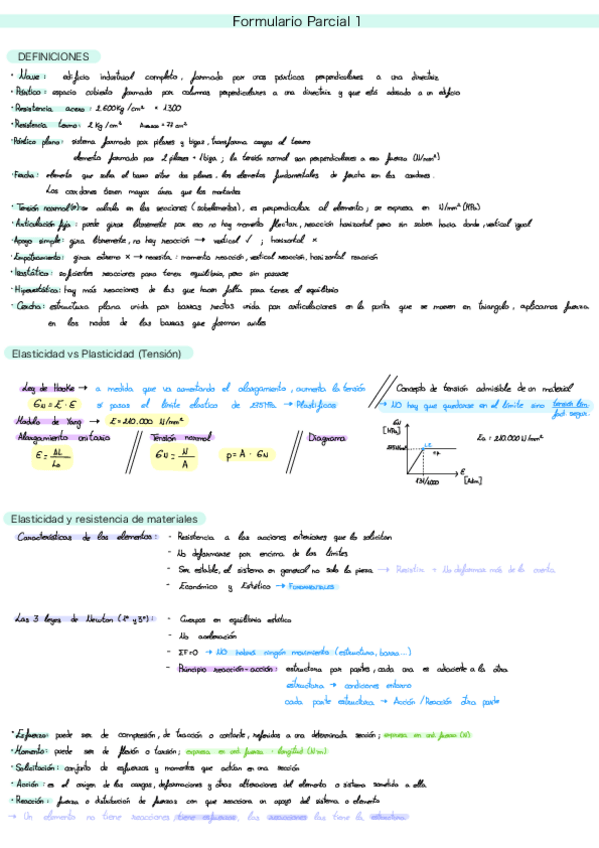 Formulario Parcial 1
DEFINICIONES
· Nave: edificio industrial completo, formado por unos pórticos perpendiculares a una directriz
· Pórtico: espacio cubierto formado por columnas perpendiculares a una directriz y que está adosado a un edificio
· Resistencia acero: 2.600Kg/cm² × 1300
· Resistencia terreno: 2 Kg/cm²
· Pórtico plano: sistema formado por pilares y vigas, transforma cargas al terreno
elemento formado por 2 pilares + 1 viga; la tensión normal son perpendiculares a esa fuerza (N/mm²)
· Percha: elemento que salva el vano entre dos pilares, los elementos fundamentales de percha son los cordones.
Los cordones tienen mayor área que los montantes
· Tensión normal(σ): se calcula en las secciones (subelementos), es perpendicular al elemento; se expresa en N/mm² (MPa)
· Articulación fija: puede girar libremente por eso no hay momento flector, reacción horizontal pero sin saber hacia donde, vertical igual
· Apoyo simple: gira libremente, no hay reacción → vertical √ ; horizontal ×
· Empotramiento: girar extremo × → necesita: momento reacción, vertical reacción, horizontal reacción
· Isostática: suficientes reacciones para tener equilibrio, pero sin pasarse
· Hiperestática: hay más reacciones de las que hacen falta para tener el equilibrio
· Cercha: estructura plana unida por barras rectas unida por articulaciones en la punta que se mueven en triangulo, aplicamos fuerza
en los nodos de las barras que forman
Elasticidad vs Plasticidad (Tensión)
Ley de Hooke → a medida que va aumentando el alargamiento, aumenta la tensión
σN = E · ε si pasas el límite elástico de 275MPa → Plastificas
Modulo de Yong → E = 210.000 N/mm²
// Concepto de tensión admisible de un material
→ NO hay que quedarse en el límite sino tensión lim.
seguri.
Alargamiento unitario // Tensión normal // Diagrama
ε = ΔL/L₀
σN = N/A
p = A · σN
σN [MPa]
LE
ε
Elasticidad y resistencia de materiales
Características de los elementos: - Resistencia a las acciones exteriores que lo solicitan
- No deformarse por encima de los límites
- Ser estable, el sistema en general no solo la pieza → Resistir + No deformar más de la cuenta
- Económico y Estético → FUNDAMENTALES
Las 3 leyes de Newton (1ª y 3ª): - Cuerpos en equilibrio estático
- No aceleración
- ΣF=0 → NO habrá ningún movimiento (estructura, barra...)
- Principio reacción-acción: estructura por partes, cada una es adyacente a la otra
estructura → condiciones entorno
cada parte estructura → Acción/Reacción otra parte
· Esfuerzo: puede ser de compresión, de tracción o cortante, referidos a una determinada sección; expresa en unt. fuerza (N)
· Momento: puede ser de flexión o torsión; expresa en unt. fuerza · longitud (N·m)
· Solicitación: conjunto de esfuerzos y momentos que actúan en una sección
· Acción: es el origen de las cargas, deformaciones y otras alteraciones del elemento o sistema sometido a ella
· Reacción: fuerza o distribución de fuerzas con que reacciona un apoyo del sistema o elemento
→ Un elemento no tiene reacciones tiene esfuerzos, las reacciones las tiene la estructura